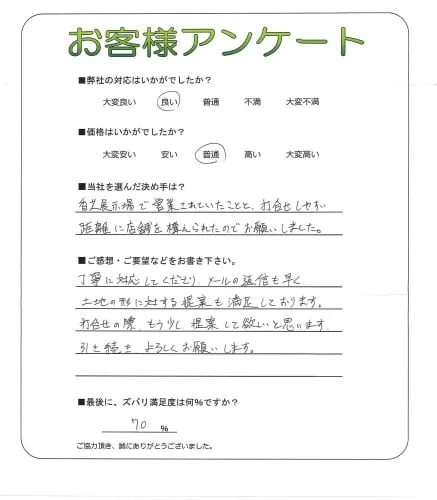 お客様アンケート
■弊社の対応はいかがでしたか?
大変良い 良い 普通 不満 大変不満
■価格はいかがでしたか?
大変安い 安い 普通 高い 大変高い
■当社を選んだ決め手は?
展示場で営業されていたことと、打合せしやすい
距離に店舗を構えられたのでお願いしました。
■ご感想・ご要望などをお書き下さい。
丁寧に対応してくださり、メールの返信も早く、
土地の形に対する提案も満足しております。
打合せの際、もう少し提案して欲しいと思います。
引き続き、よろしくお願いします。
■最後に、ズバリ満足度は何%ですか?
70 %
ご協力頂き、誠にありがとうございました。